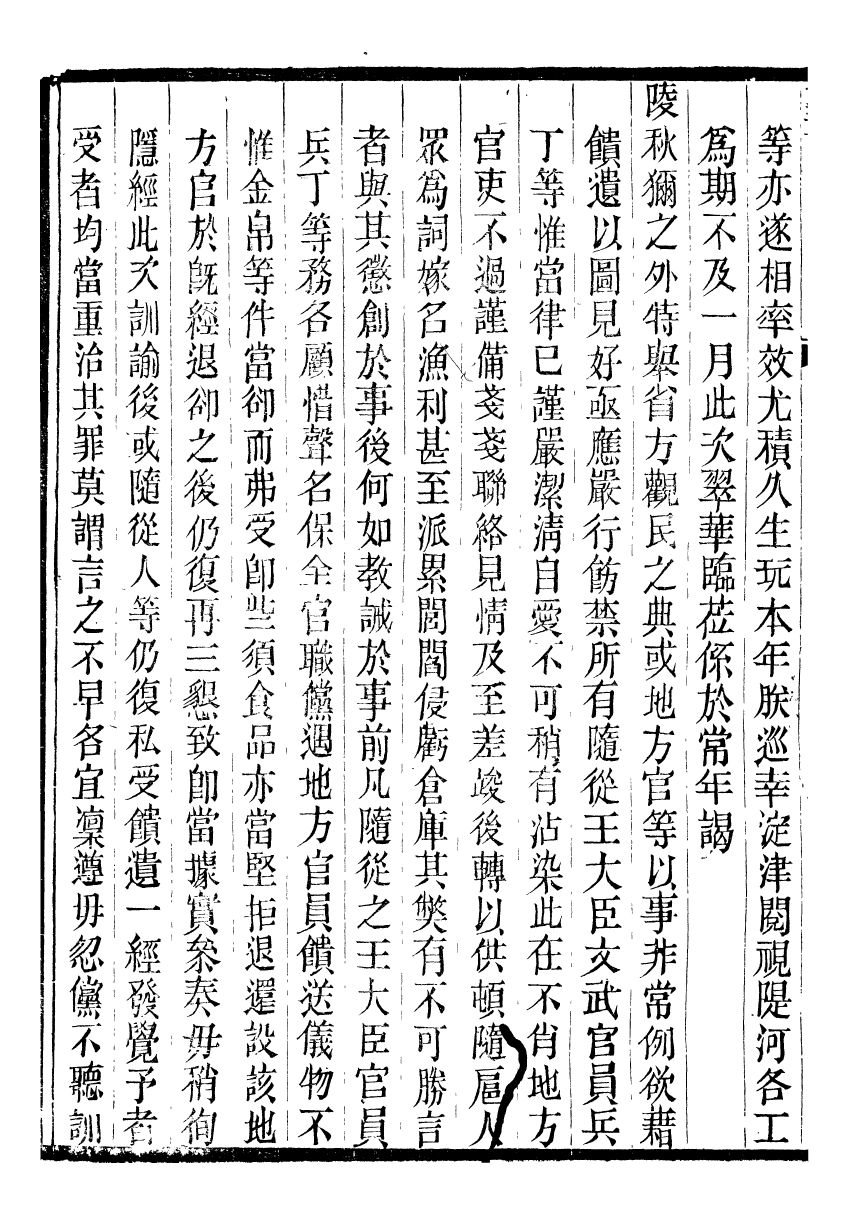 等亦遂相率效尤積久生玩本年朕巡幸淀津閱視隄河各工
為期不及一月此次翠華臨莅係於常年謁
陵秋獮之外特舉省方觀民之典或地方官等以事非常例欲藉
饋遺以圖見好亟應嚴行飭禁所有隨從王大臣文武官員兵
丁等惟當律己謹嚴潔淸自愛不可稍有沾染此在不肖地方
官吏不過謹備戔戔聯絡見情及至差竣後轉以供頓隨扈人
眾為詞嫁名漁利甚至派累閭閻侵虧倉庫其獘有不可勝言
者與其懲創於事後何如教誡於事前凡隨從之王大臣官員
兵丁等務各顧惜聲名保全官職儻遇地方官員饋送儀物不
惟金帛等件當卻而弗受卽些須食品亦當堅拒退還設該地
方官於旣經退卻之後仍復再三懇致卽當據實叅奏毋稍徇
隱經此次訓諭後或隨從人等仍復私受饋遺一經發覺予者
受者均當重治其罪莫謂言之不早各宜凜遵毋忽儻不聽訓